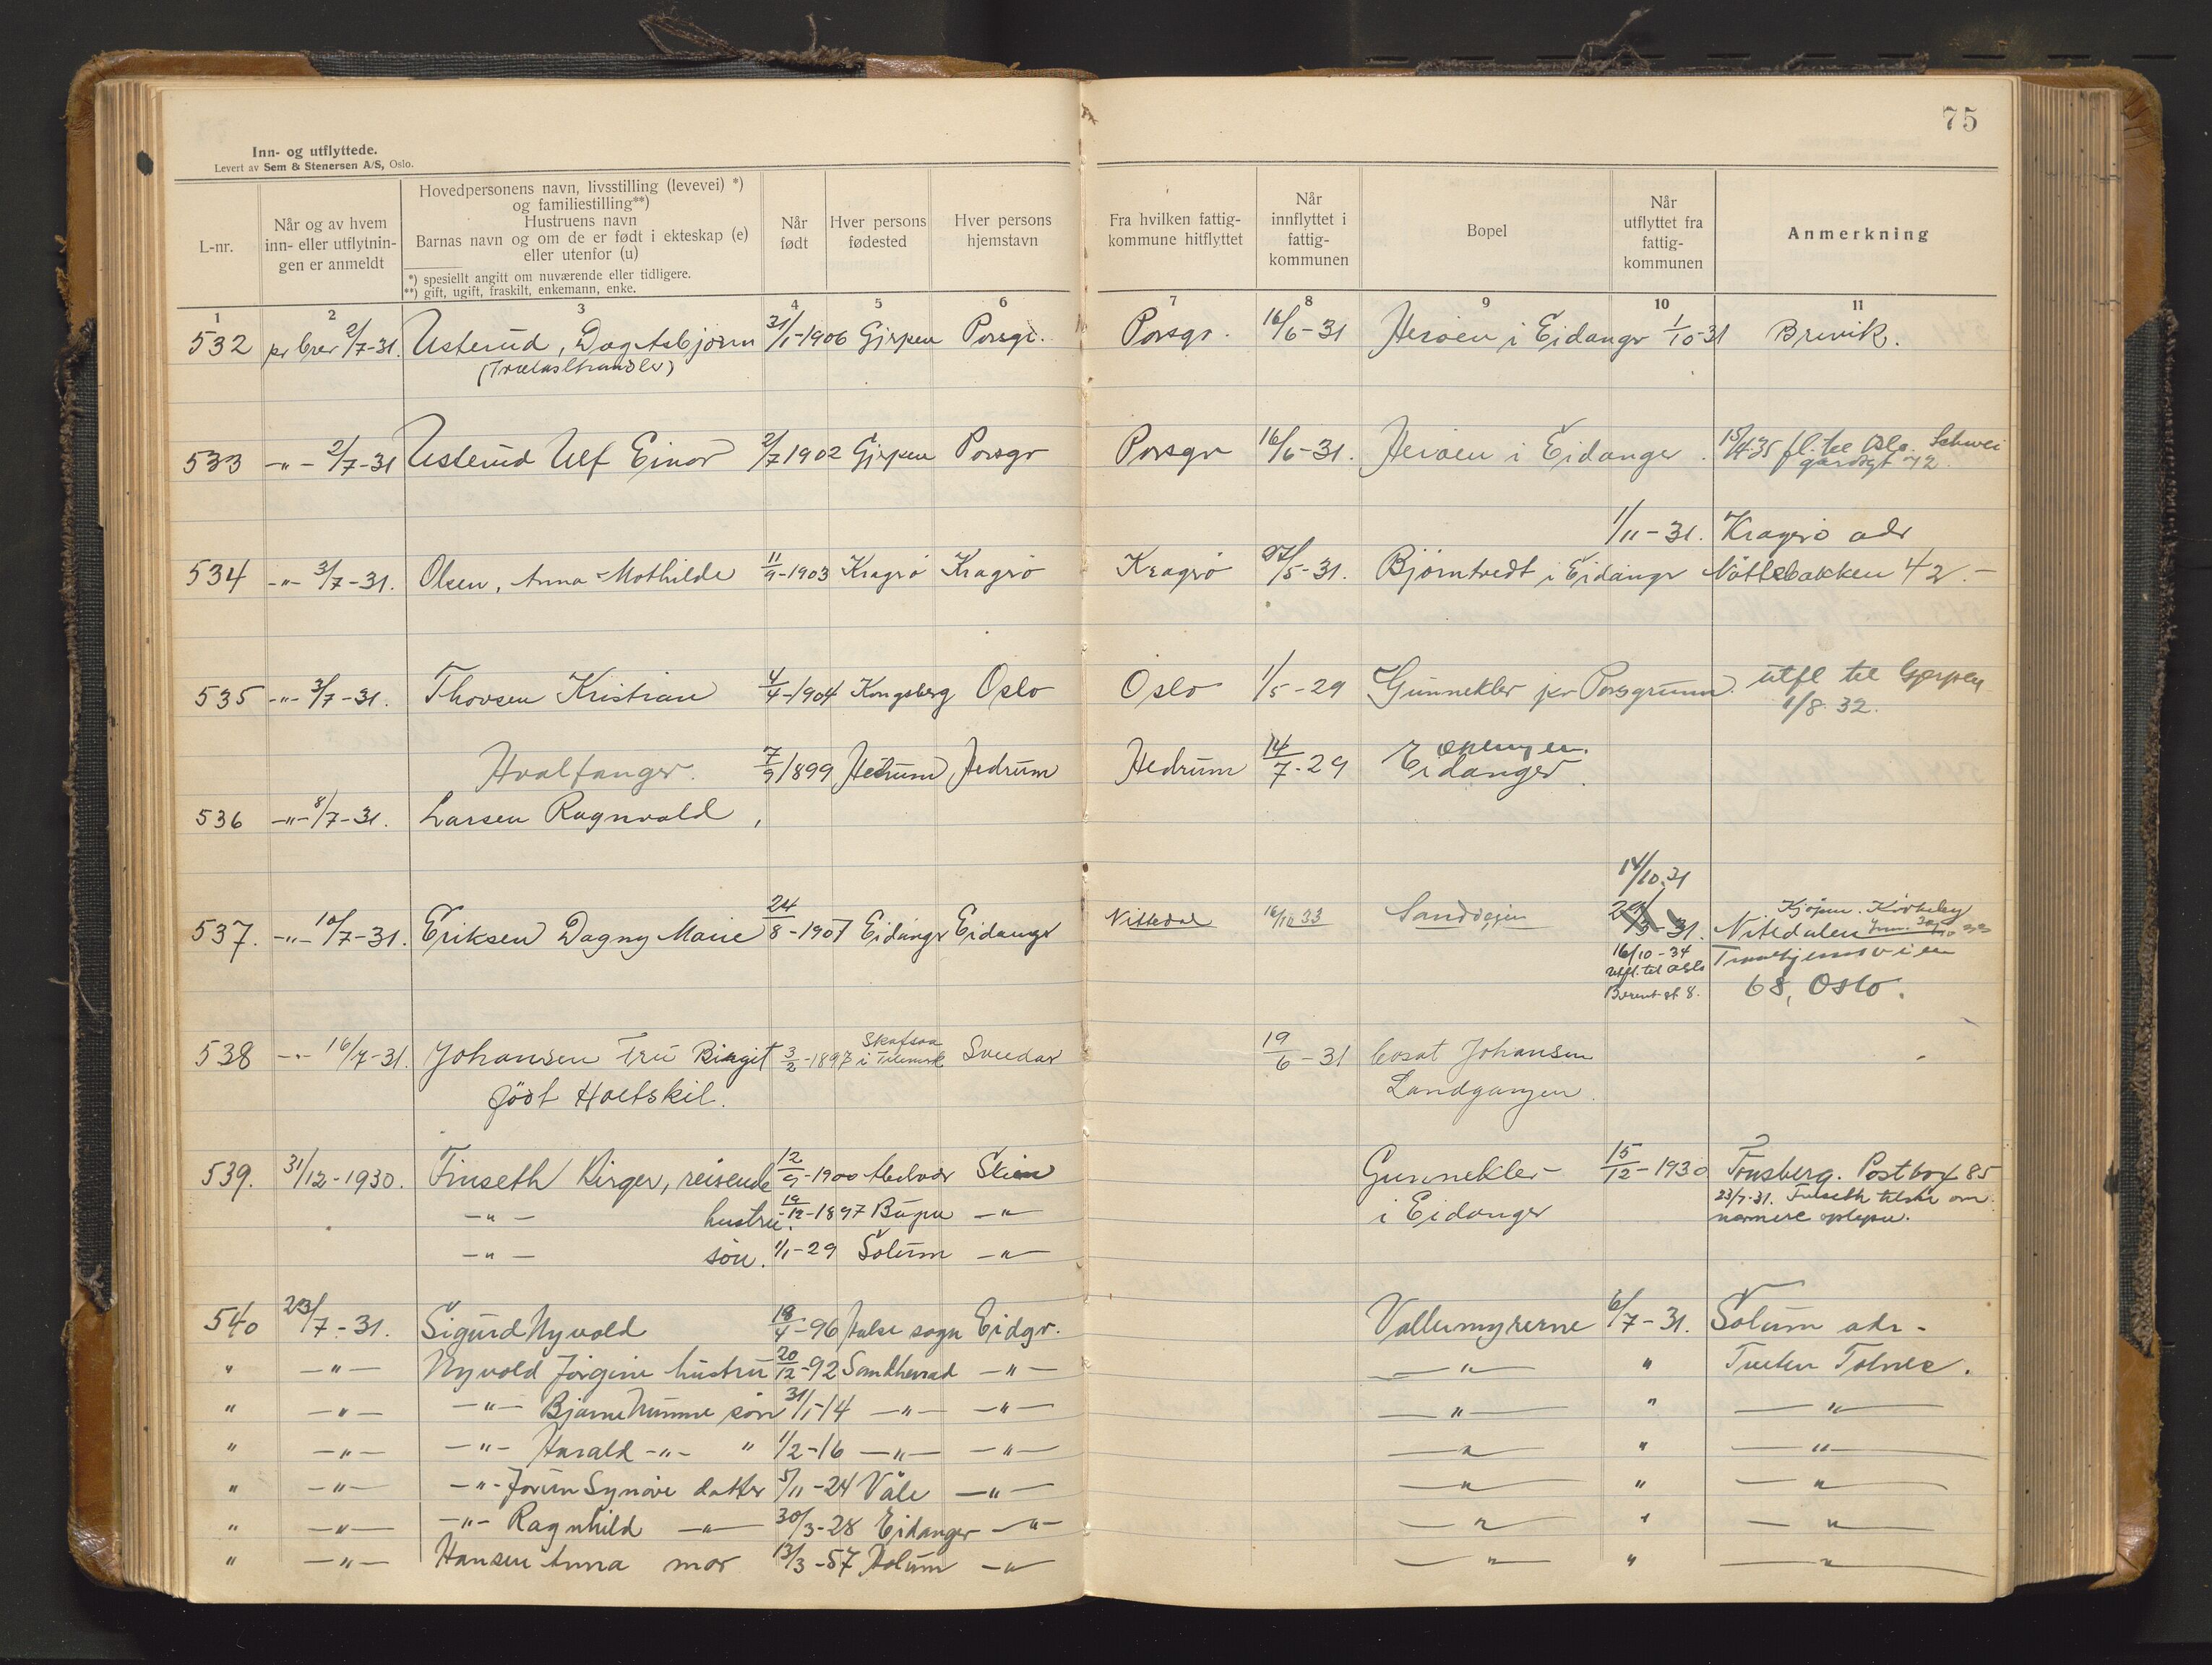 75
Inn- og utflyttede.
Levert av Sem & Stenersen A/S, Oslo.
L-nr.
Når og av hvem
inn- eller utflytnin-
gen er anmeldt
Hovedpersonens navn, livsstilling (levevei) *)
og familiestilling**)
Hustruens navn
Barnas navn og om de er født i ekteskap (e)
eller utenfor (u)
*) spesiellt angitt om nuværende eller tidligere.
**) gift, ugift, fraskilt, enkemann, enke.
Når
født
Hver persons
fødested
Hver persons
hjemstavn
Fra hvilken fattig-
kommune hitflyttet
Når
innflyttet i
fattig-
kommunen
Bopel
Når
utflyttet fra
fattig-
kommunen
Anmerkning
1 2 3 4 5 6 7 8 9 10 11
532 pr brev 2/7-31. Usterud, Dag Asbjørn 31/1-1906 Gjerpen Porsgr. Porsgr. 16/6-31 Herøen i Eidangr 1/10-31 Brevik.
(Trælasthandler)
533 -"- 2/7-31 Usterud Ulf Einar 2/7 1902 Gjerpen Porsgr Porsgr 16/6-31. Herøen i Eidanger. 15/4-35 fl. til Oslo. Schwei
gårdsgt 42.
1/11-31. Kragerø adr
534 -"- 3/7-31. Olsen, Anna Mathilde 11/9-1903 Kragrø Kragrø Kragrø 27/5-31. Bjørntvedt i Eidangr Nåttebakken 42.-
535 -"- 3/7-31. Thovsen Kristian 4/4-1904 Kongsberg Oslo Oslo 1/5-29 Gunnekler pr Porsgrunn. utfl til Gjerpen
1/8 32.
Hvalfanger. 7/9 1899 Hedrum, Hedrum Hedrum 14/7-29 Eidanger.
536 -"- 8/7-31. Larsen Ragnvald,
14/10.31
537. -"- 10/7-31. Eriksen Dagny Marie 24/8-1907 Eidangr Eidangr Nittedal 16/10 33 Sandvejen 29/3-31. Nitedalen
16/10-34
utfl. til Oslo
68, Oslo.
538 -"- 16/7-31. Johansen Fru Birgit 3/2-1897 Skafsaa
i Telemark 19/6-31 Johansen
født
Landgangen.
539. 31/12-1930. Finseth Birger, reisende 12/9-1900 Skien Gunnekler- 15/12-1930 Tønsberg. Postbox 85
-"- hustru. 19/12-1897 -"- i Eidanger 23/7-31. om
nærmere
-"- søn. 1/1-29 Solum -"-
540 23/7-31. Sigurd Nyvold 18/4-96 Halse sogn Eidgr. Vallermyrerne 6/7-31. Solum adr-
" -"- Nyvold Jørgine hustru 20/12-92 Sandherad -"- -"- " Tolnes.
" -"- -"- Bjarne Numme søn 31/1-14 -"- -"- -"- " -"-
" -"- -"- Harald -"- " 1/2-16 -"- -"- -"- " -"-
" -"- -"- Jorun Synøve datter 5/11-24 Våle -"- -"- " -"-
" -"- -"- Ragnhild -"- 30/3-28 Eidanger -"- -"- " -"-
" -"- Hansen Anna mor 13/3-57 Holum -"- -"- " -"-